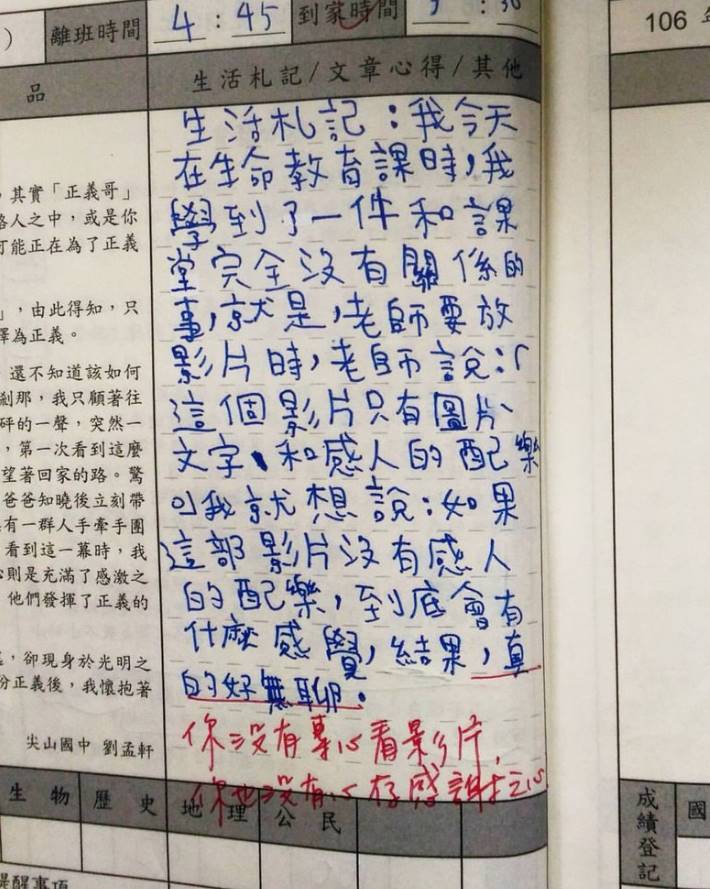 離班時間 4:45 到家時間 : 30
106
品
生活札記/文章心得/其他
生活札記：我今天
在生命教育課時，我
學到了一件和課
堂完全沒有關係的
事，就是，老師要放
影片時，老師說：「
這個影片只有圖片、
文字、和感人的配樂
」我就想說：如果
這部影片沒有感人
的配樂，到底會有
什麼感覺，結果，真
的好無聊。
你沒有專心看影片，
你也沒有心存感謝之心
，其實「正義哥」
路人之中，或是你
可能正在為了正義
」，由此得知，只
擇為正義。
還不知道該如何
剎那，我只顧著往
砰的一聲，突然一
，第一次看到這麼
望著回家的路。驚
爸爸知曉後立刻帶
有一群人手牽手圍
看到這一幕時，我
心則是充滿了感激之
他們發揮了正義的
，卻現身於光明之
份正義後，我懷抱著
尖山國中 劉孟軒
生物 歷史 地理 公民
成績登記
國
提醒事項